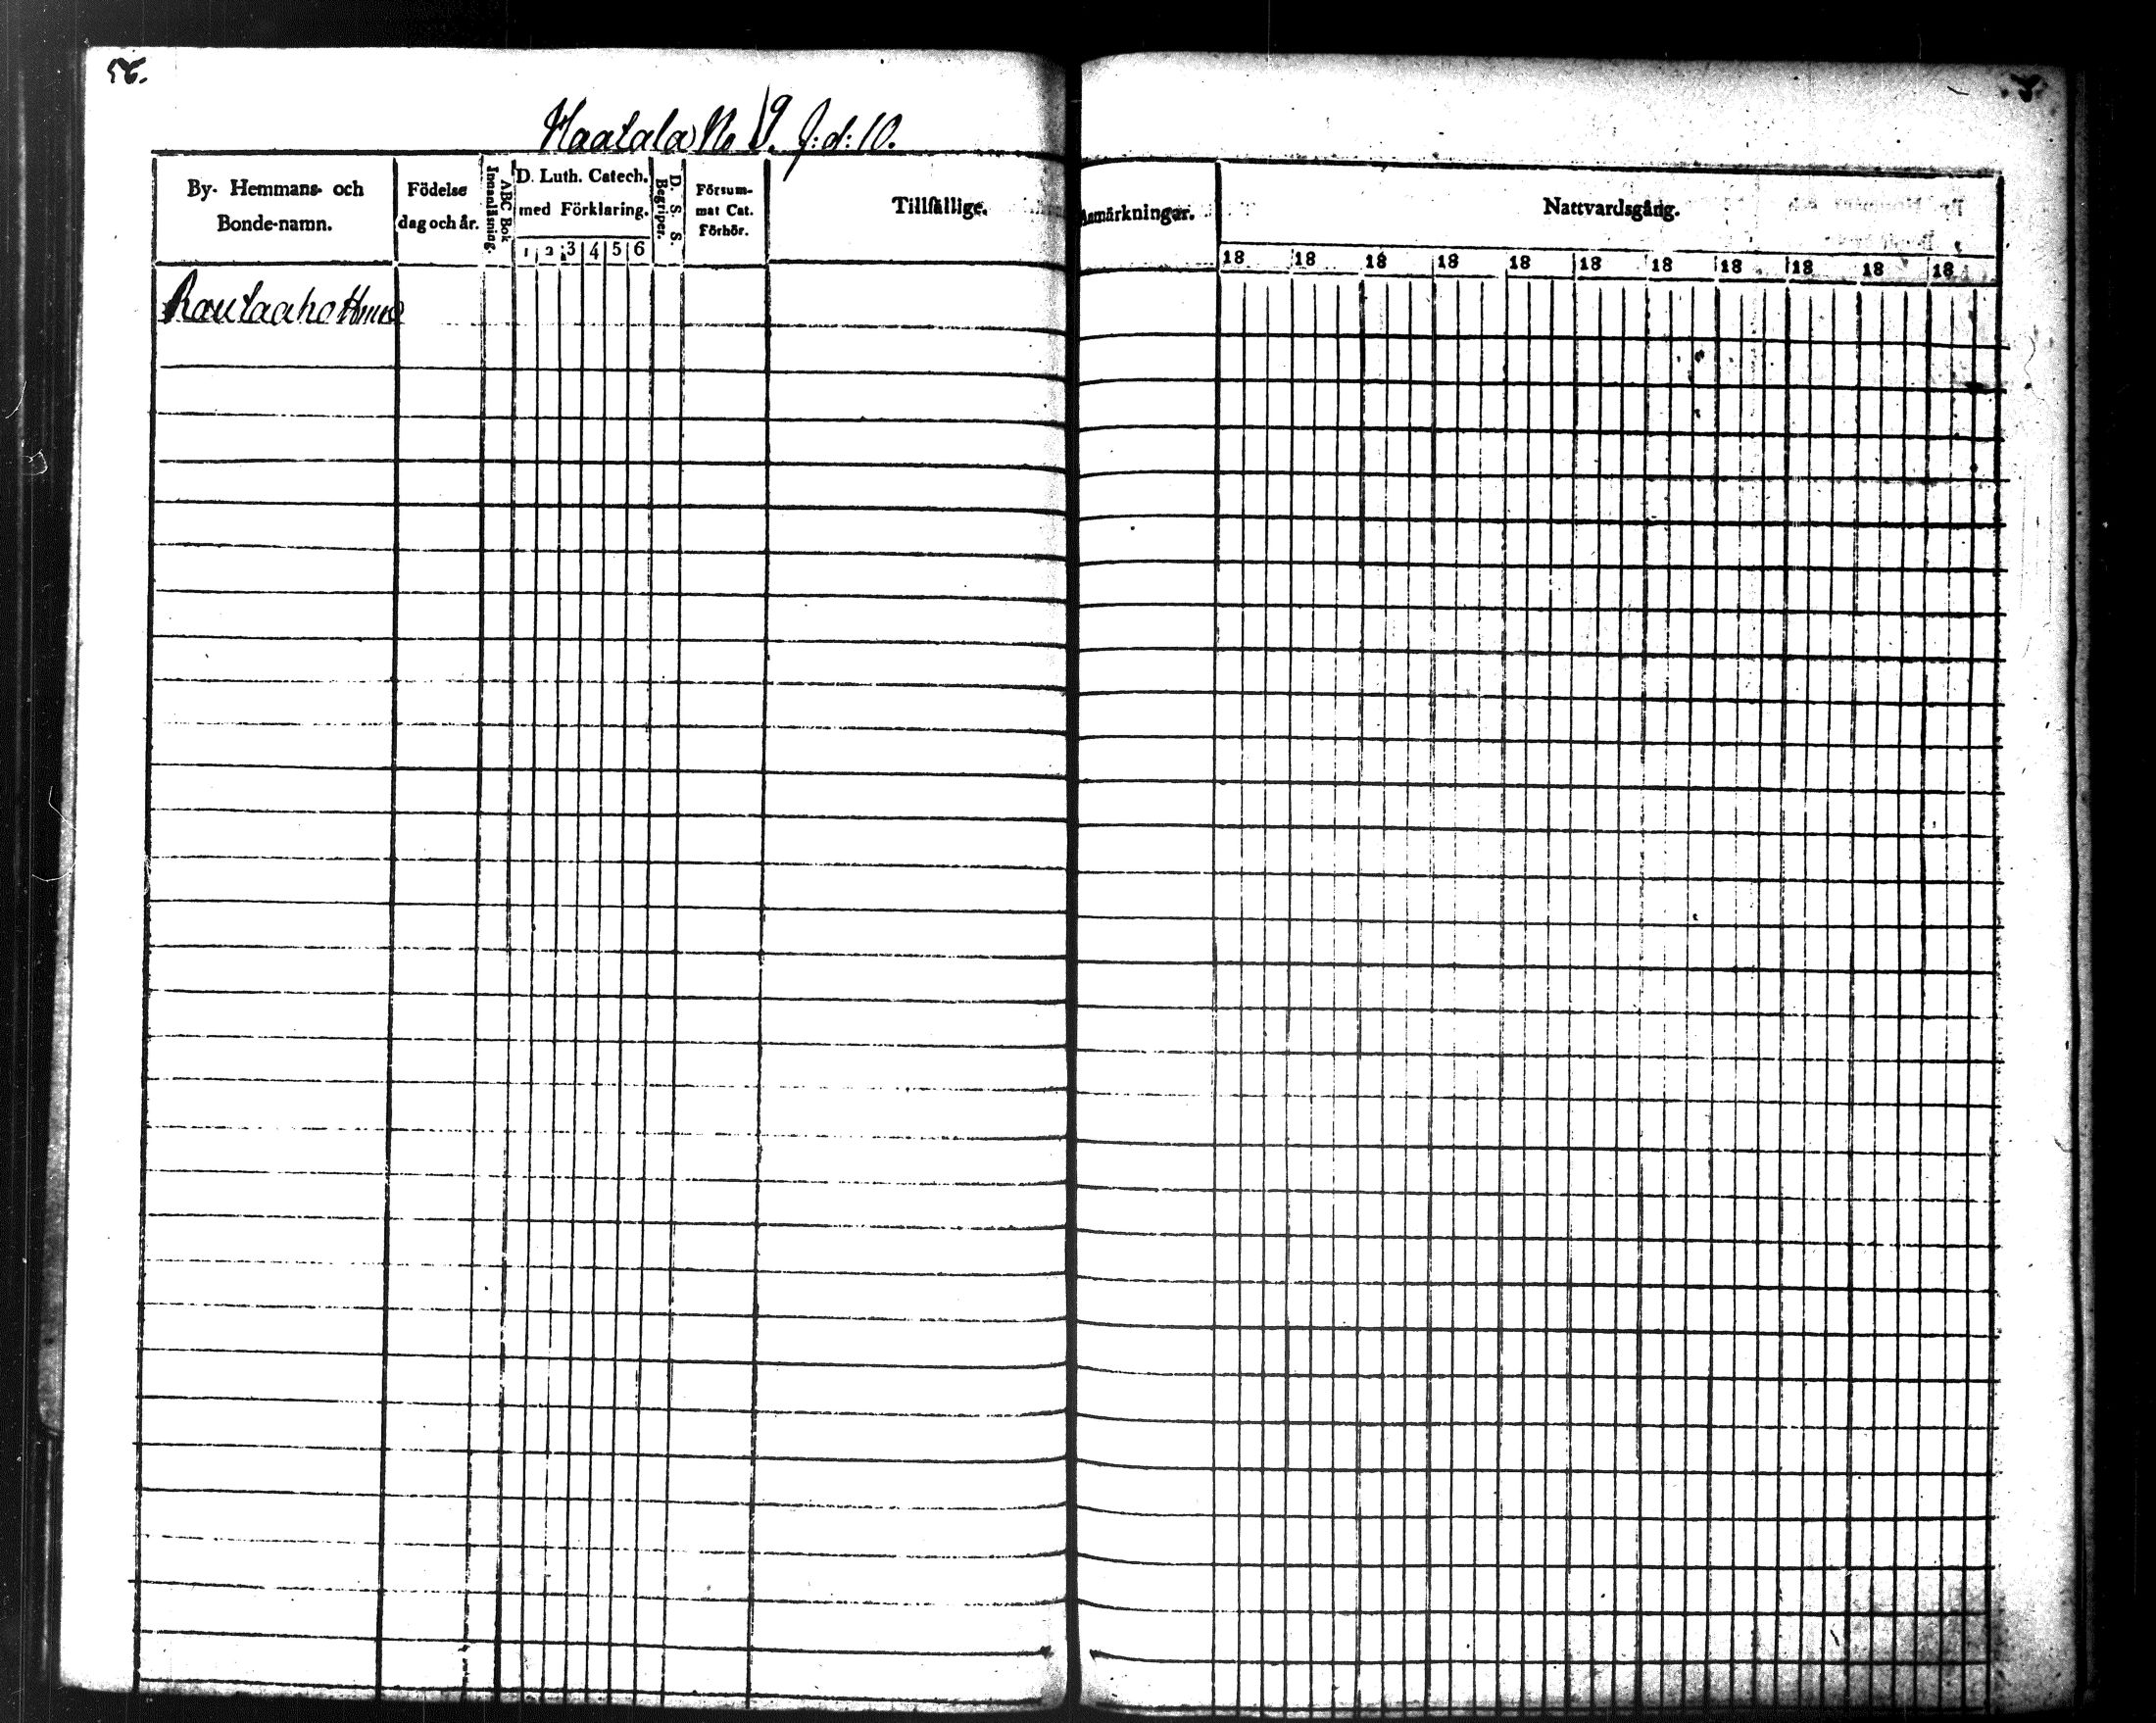 56.
Haatala No 9. f:d: 10.
By- Hemmans- och Bonde-namn.
Födelse dag och år.
Innanläsning.
ABC Bok
D. Luth. Catech. med Förklaring.
1 2 3 4 5 6
D. S. S. Begriper.
Försum-
mat Cat.
Förhör.
Tillfällige. Anmärkningar.
Nattvardsgång.
18 18 18 18 18 18 18 18 18 18 18
Rautaaho